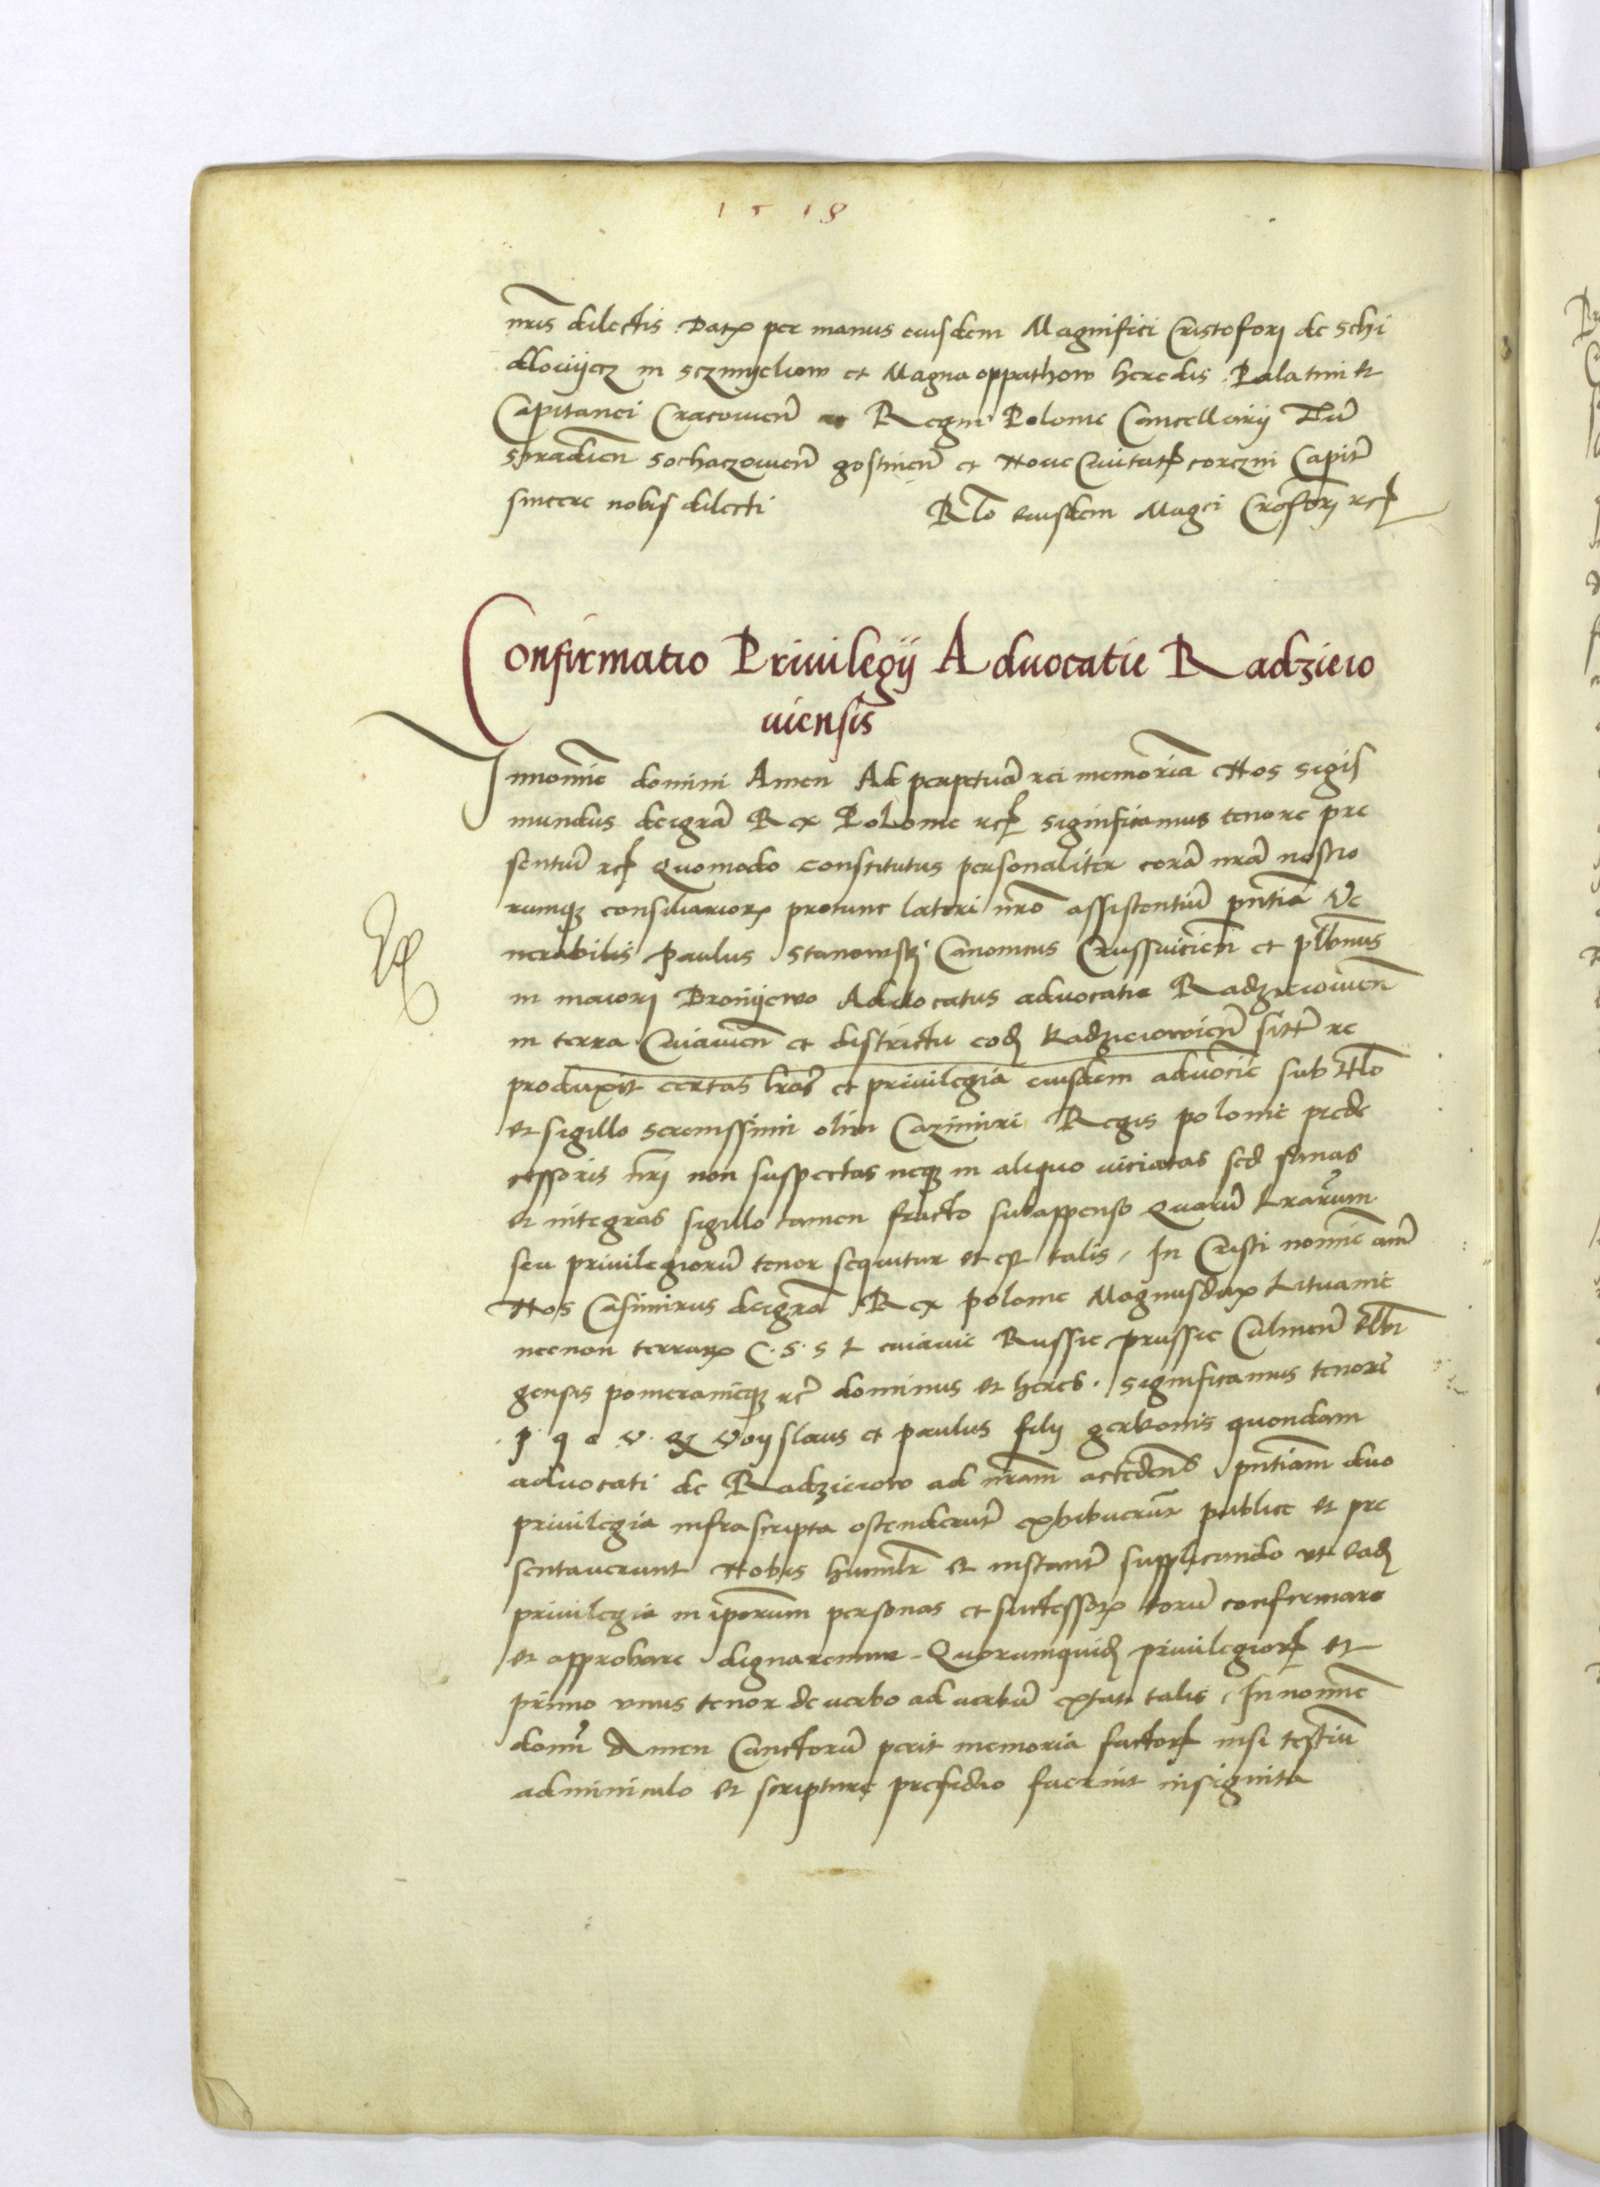 1518
nr̃is dilectis . Datꝝ per manus eiusdem Magnifici Cristoferi de Schi
dloviiecz in Sczmyelvow et Magna oppathow heredis . Palatini et
Capitanei Cracovieñ ac Regni Polonie Cancellarii
Siradień Sochaczovieñ gostineñ et Nove Civitatꝭ corczin Capiť
sincere nobis dilecti
Rł̃o eiusdem Mag̃ci Cr̃ofori rcꝭ
Confirmatio Privilegii Advocatie Radziew
viensis
In noı̃e domini Amen Ad perpetuã rei memoriã Nos Sigis
mundus dei gr̃a Rex Polonie rcꝭ significamus tenore pre
sentiũ rcꝭ Quomodo constitutus personaliter corã nrã nostro
rumqꝫ consiliariorꝝ protunc lateri nr̃o assistentiũ pñtiã Ve
nerabilis Paulus Stanowskj Canonicus Crussvicień et plbanus
in maiori Broniiewo Advocatus advocatie Radzieiovień
in terra Cuiavień et districtu eodꝫ Radzieiowień siť re
produxit certas lrãs et privilegia eiusdem advocie sub tł̃o
et sigillo serenissimi olim Cazimiri Regis polonie prede
cessoris nr̃i non suspectas neqꝫ in aliquo viciatas sed sanas
et integras sigillo tamen fracto subappenso Quarũ Lrarum
seu privilegiorũ tenor sequitur et est talis , In Cristi noı̃e am̃
Nos Casimirus dei gr̃a Rex polonie Magnus dux Lituanie
necnon terrarꝝ C . S . S L cuiavie Russie prussie Culmeñ Elbi
gensis pomeranieqꝫ rc̃ dominus et heres . Significamus tenore
p q e v . qꝫ Voyslaus et paulus filii gerkonis quondam
advocati de Radzieiow ad nr̃am accedeñs pñtiam duo
privilegia infrascripta ostenderũt exhibuerũt publice et pre
sentaverunt Nobis humiľr et instanť supplicando ut eadꝫ
privilegia in ip̃orum personas et successorꝝ eorũ confirmare
et approbare dignaremur . Quorumquidꝫ privilegiorꝝ et
primo unus tenor de verbo ad verbũ extat talis , In noı̃e
domĩ Amen Cunctorũ perit memoria factorꝝ nisi testiũ
adminiculo et scripture presidio fuerint insignita